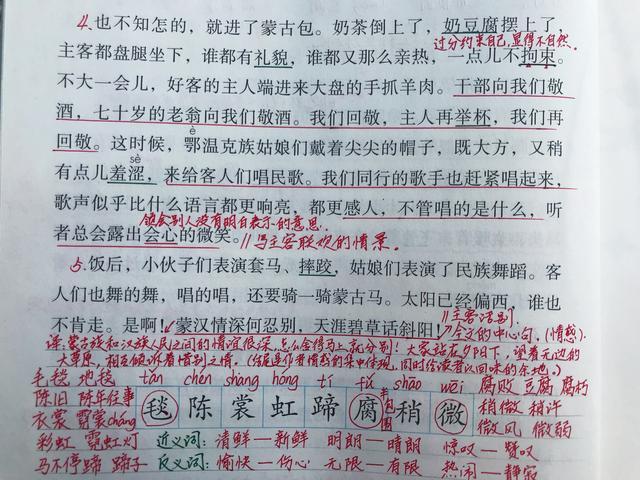 4.也不知怎的，就进了蒙古包。奶茶倒上了，奶豆腐摆上了，
过分约束自己，显得不自然。
主客都盘腿坐下，谁都有礼貌，谁都又那么亲热，一点儿不拘束。
不大一会儿，好客的主人端进来大盘的手抓羊肉。干部向我们敬
酒，七十岁的老翁向我们敬酒。我们回敬，主人再举杯，我们再
回敬。这时候，鄂温克族姑娘们戴着尖尖的帽子，既大方，又稍
è
有点儿羞涩，来给客人们唱民歌。我们同行的歌手也赶紧唱起来，
sè
歌声似乎比什么语言都更响亮，都更感人，不管唱的是什么，听
领会别人没有明白表示的意思。
者总会露出会心的微笑。//写主客联欢的情景。
5.饭后，小伙子们表演套马、摔跤，姑娘们表演了民族舞蹈。客
人们也舞的舞，唱的唱，还要骑一骑蒙古马。太阳已经偏西，谁也
不肯走。是啊！蒙汉情深何忍别，天涯碧草话斜阳！
//主客话别
全文的中心句。(情感)
译:蒙古族和汉族人民之间的情谊很深,怎么舍得马上就分别!大家站在夕阳下,望着无边的
大草原,相互倾诉着惜别之情。(结尾是作者情感的集中体现,同时给读者以回味的余地。)
毛毯 地毯 tǎn chén shang hóng tí fǔ shāo wēi 腐败 豆腐 腐朽
陈旧 陈年往事 毯 陈 裳 虹 蹄 腐 稍 微 稍微 稍许
半包围
衣裳 霓裳cháng 微风 微弱
彩虹 霓虹灯 近义词: 清鲜—新鲜 明朗—晴朗 惊叹—赞叹
马不停蹄 蹄子 反义词: 愉快—伤心 无限—有限 热闹—静寂